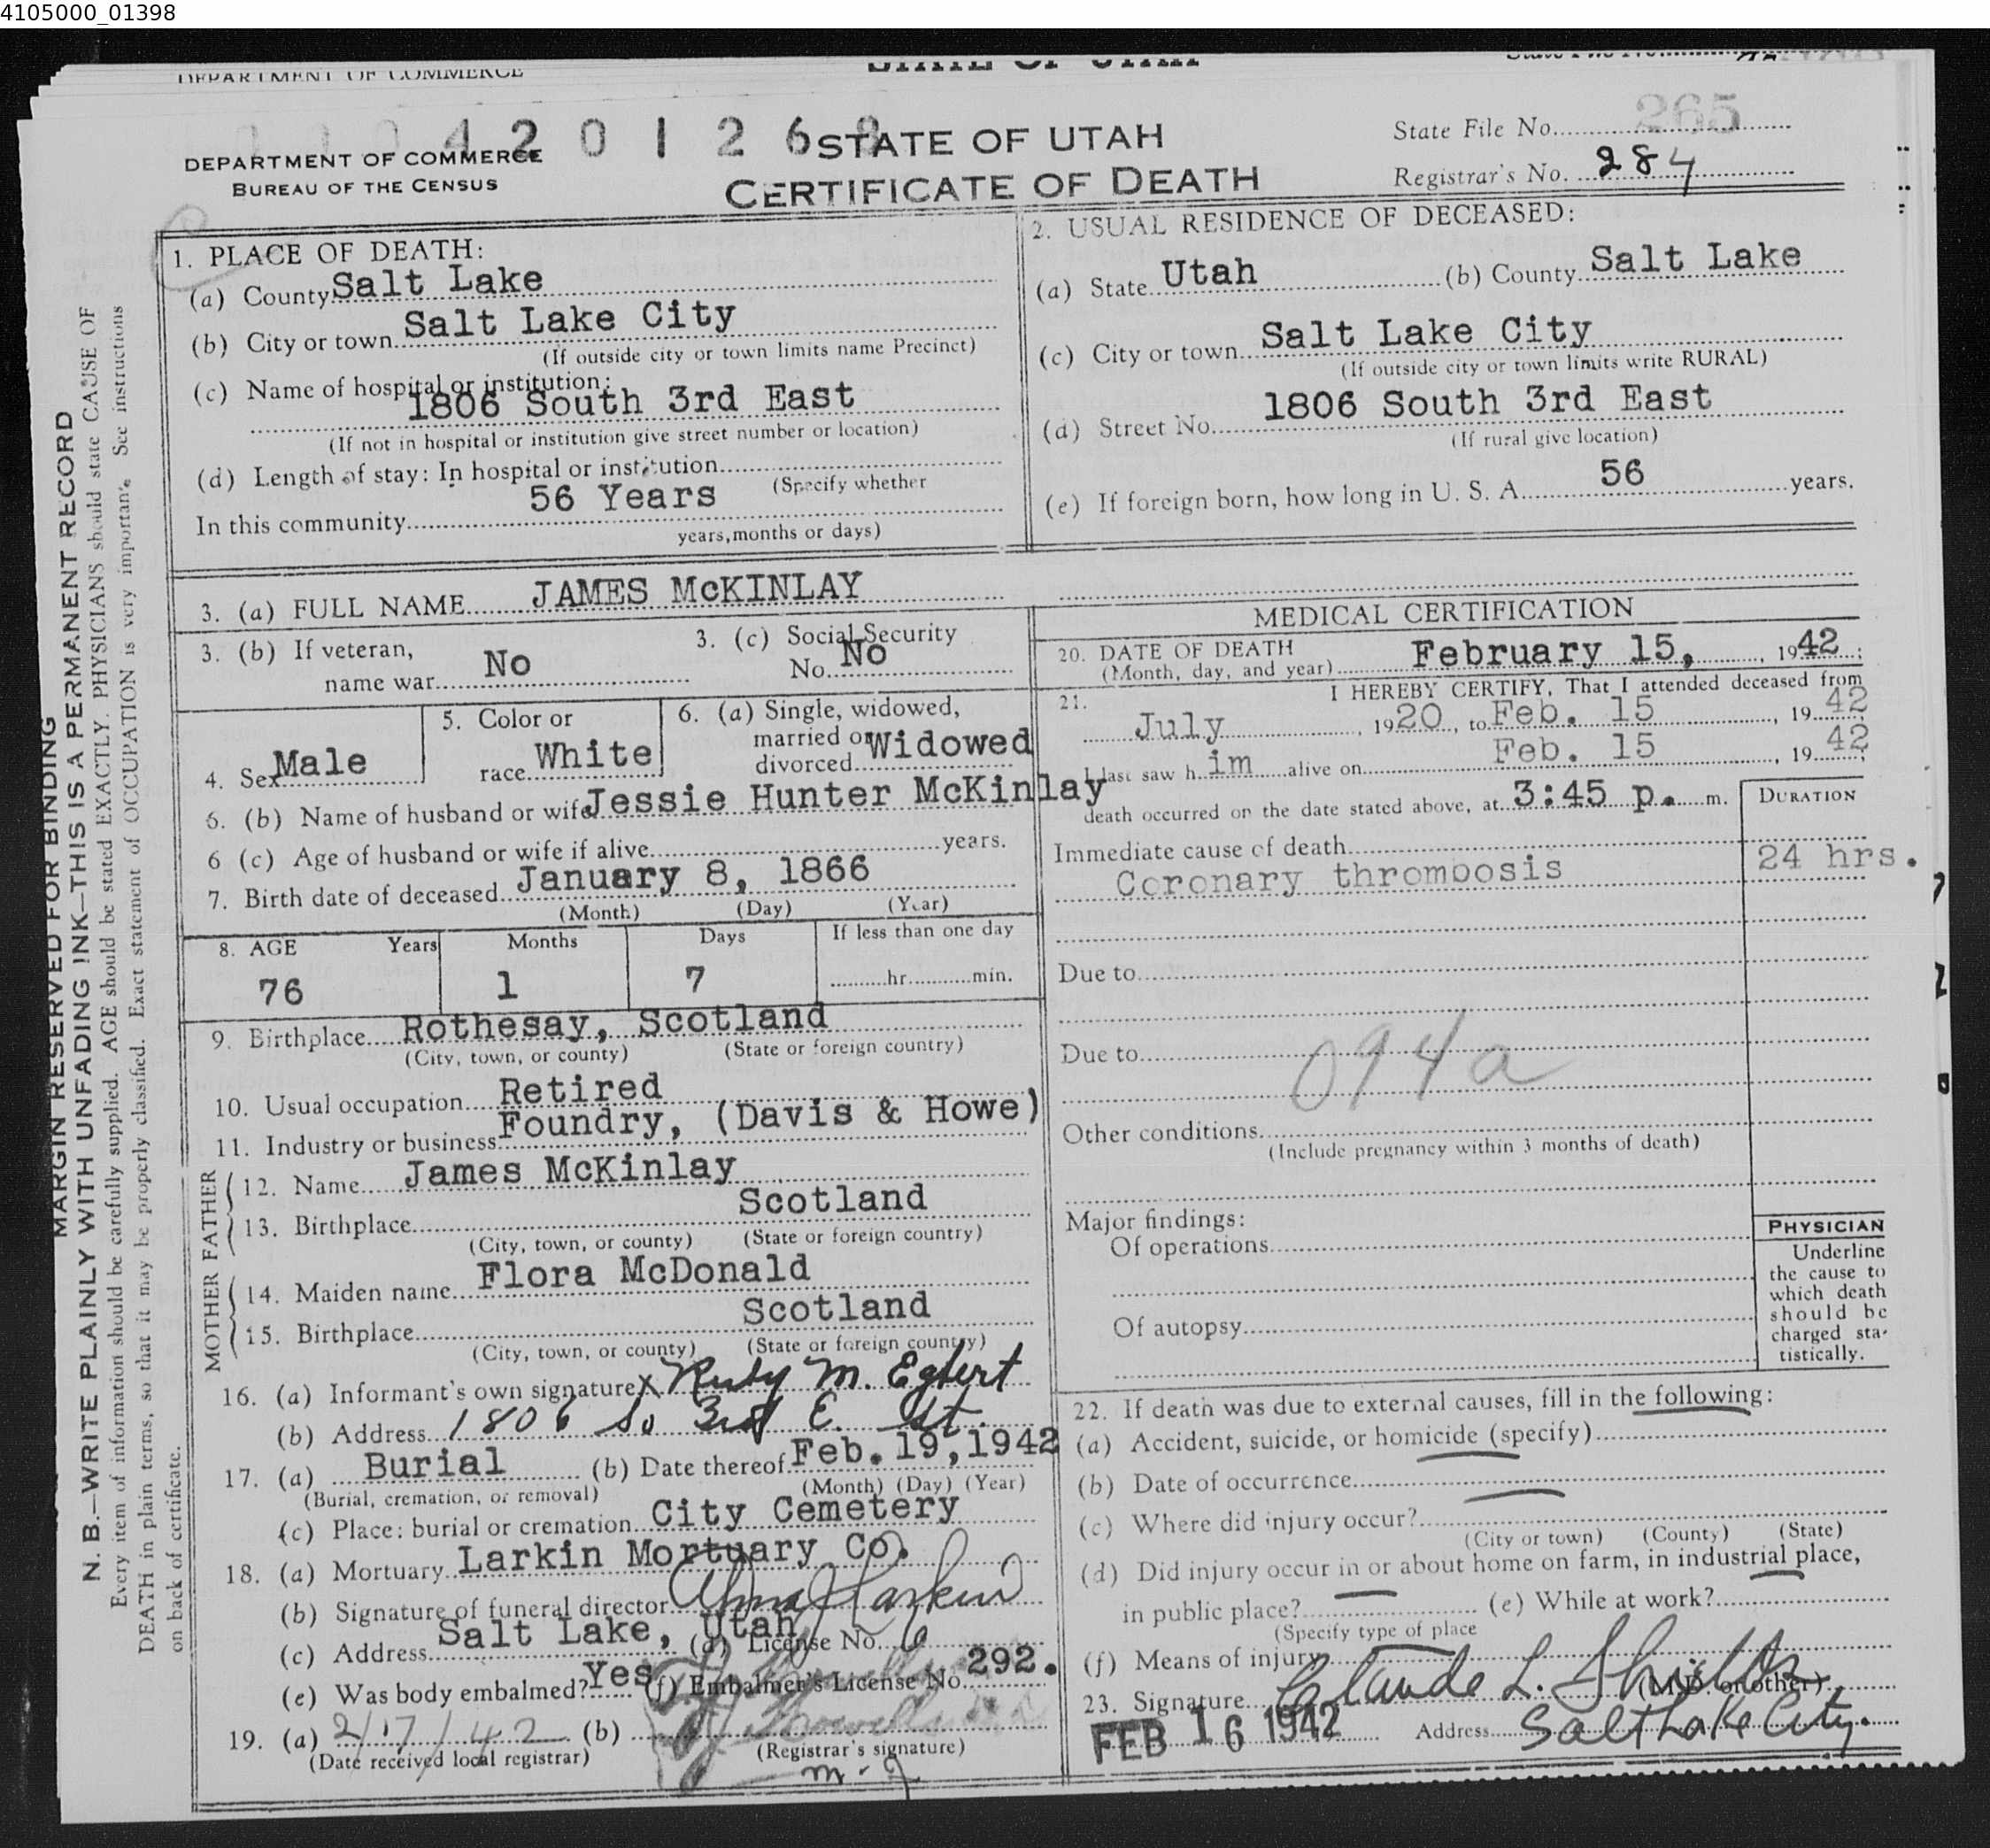 4105000_01398
DEPARTMENT OF COMMERCE
STATE OF UTAH
DEPARTMENT OF COMMERCE
BUREAU OF THE CENSUS
4 2 0 1 2 6
STATE OF UTAH
CERTIFICATE OF DEATH
State File No. 265
Registrar's No. 284
MARGIN RESERVED FOR BINDING
N. B.—WRITE PLAINLY WITH UNFADING INK—THIS IS A PERMANENT RECORD
Every item of information should be carefully supplied. AGE should be stated EXACTLY. PHYSICIANS should state CAUSE OF
DEATH in plain terms, so that it may be properly classified. Exact statement of OCCUPATION is very important. See instructions
on back of certificate.
1. PLACE OF DEATH:
(a) County Salt Lake
(b) City or town Salt Lake City
(If outside city or town limits name Precinct)
(c) Name of hospital or institution:
1806 South 3rd East
(If not in hospital or institution give street number or location)
(d) Length of stay: In hospital or institution
(Specify whether
In this community 56 Years
years, months or days)
2. USUAL RESIDENCE OF DECEASED:
(a) State Utah (b) County Salt Lake
(c) City or town Salt Lake City
(If outside city or town limits write RURAL)
(d) Street No. 1806 South 3rd East
(If rural give location)
(e) If foreign born, how long in U. S. A. 56 years.
3. (a) FULL NAME JAMES McKINLAY
3. (b) If veteran,
name war No
3. (c) Social Security
No. No
4. Sex Male
5. Color or
race White
6. (a) Single, widowed,
married or
divorced Widowed
6. (b) Name of husband or wife Jessie Hunter McKinlay
6 (c) Age of husband or wife if alive years.
7. Birth date of deceased January 8, 1866
(Month) (Day) (Year)
8. AGE Years Months Days If less than one day
76 1 7 hr. min.
9. Birthplace Rothesay, Scotland
(City, town, or county) (State or foreign country)
10. Usual occupation Retired
11. Industry or business Foundry, (Davis & Howe)
FATHER
12. Name James McKinlay
13. Birthplace Scotland
(City, town, or county) (State or foreign country)
MOTHER
14. Maiden name Flora McDonald
15. Birthplace Scotland
(City, town, or county) (State or foreign country)
16. (a) Informant's own signature X Ruby M. Egbert
(b) Address 1806 So 3rd E. St.
17. (a) Burial (b) Date thereof Feb. 19, 1942
(Burial, cremation, or removal) (Month) (Day) (Year)
(c) Place: burial or cremation City Cemetery
18. (a) Mortuary Larkin Mortuary Co.
(b) Signature of funeral director Alma J Larkin
(c) Address Salt Lake, Utah (d) License No. 6
(e) Was body embalmed? Yes (f) Embalmer's License No. 292.
19. (a) 2/17/42 (b)
(Date received local registrar) (Registrar's signature)
MEDICAL CERTIFICATION
20. DATE OF DEATH
(Month, day, and year) February 15, 1942
21. I HEREBY CERTIFY, That I attended deceased from
July, 1920, to Feb. 15, 1942
I last saw him alive on Feb. 15, 1942
death occurred on the date stated above, at 3:45 p. m.
DURATION
Immediate cause of death
Coronary thrombosis 24 hrs.
Due to
Due to
094a
Other conditions
(Include pregnancy within 3 months of death)
Major findings:
Of operations
Of autopsy
PHYSICIAN
Underline
the cause to
which death
should be
charged sta-
tistically.
22. If death was due to external causes, fill in the following:
(a) Accident, suicide, or homicide (specify)
(b) Date of occurrence
(c) Where did injury occur?
(City or town) (County) (State)
(d) Did injury occur in or about home on farm, in industrial place,
in public place? (e) While at work?
(Specify type of place
(f) Means of injury
23. Signature Claude L. Shields (M.D. or other)
FEB 16 1942 Address Salt Lake City.